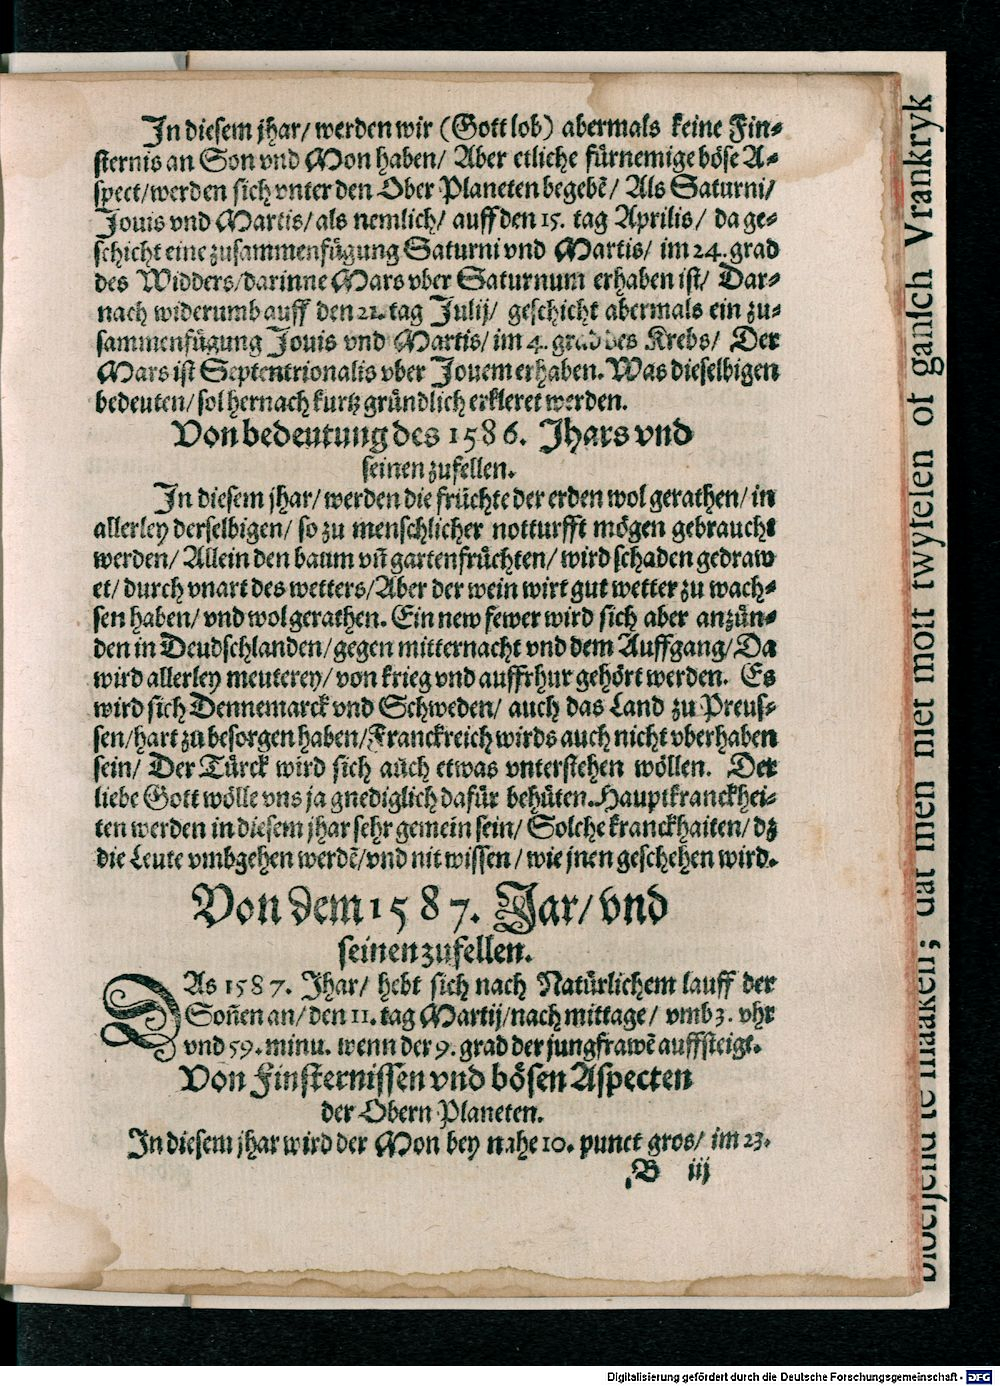 In diesem jhar/ werden wir (Gott lob) abermals keine Fin⸗
sternis an Son vnd Mon haben/ Aber etliche fürnemige böse A⸗
spect/werden sich vnter den Ober Planeten begebē/ Als Saturni/
Jouis vnd Martis/ als nemlich/ auff den 15. tag Aprilis/ da ge⸗
schicht eine zusammenfügung Saturni vnd Martis/ im 24. grad
des Widders/darinne Mars vber Saturnum erhaben ist/ Dar⸗
nach widerumb auff den 21. tag Julij/ geschicht abermals ein zu⸗
sammenfügung Jouis vnd Martis/ im 4. grad des Krebs/ Der
Mars ist Septentrionalis vber Jouem erhaben. Was dieselbigen
bedeuten/ sol hernach kurtz gründlich erkleret werden.
Von bedeutung des 1586. Jhars vnd
seinen zufellen.
In diesem jhar/ werden die früchte der erden wol gerathen/ in
allerley derselbigen/ so zu menschlicher notturfft mögen gebraucht
werden/ Allein den baum vñ gartenfrüchten/ wird schaden gedraw
et/ durch vnart des wetters/Aber der wein wirt gut wetter zu wach⸗
sen haben/ vnd wol gerathen. Ein new fewer wird sich aber anzün⸗
den in Deudschlanden/ gegen mitternacht vnd dem Auffgang/ Da
wird allerley meuterey/ von krieg vnd auffrhur gehört werden. Es
wird sich Dennemarck vnd Schweden/ auch das Land zu Preus⸗
sen/hart zu besorgen haben/Franckreich wirds auch nicht vberhaben
sein/ Der Türck wird sich auch etwas vnterstehen wöllen. Der
liebe Gott wölle vns ja gnediglich dafür behüten. Hauptkranckhei⸗
ten werden in diesem jhar sehr gemein sein/ Solche kranckhaiten/ dz
die Leute vmbgehen werdē/vnd nit wissen/ wie jnen geschehen wird.
Von dem 1587. Jar/ vnd
seinen zufellen.
DAs 1587. Jhar/ hebt sich nach Natürlichem lauff der
Soñen an/ den 11. tag Martij/nach mittage/ vmb 3. vhr
vnd 59. minu. wenn der 9. grad der jungfrawē auffsteigt.
Von Finsternissen vnd bösen Aspecten
der Obern Planeten.
In diesem jhar wird der Mon bey nahe 10. punct gros/ im 23.
B iij
bloeijend te maaken; dat men niet mott twyfelen of ganſch Vrankryk
Digitalisierung gefördert durch die Deutsche Forschungsgemeinschaft - DFG